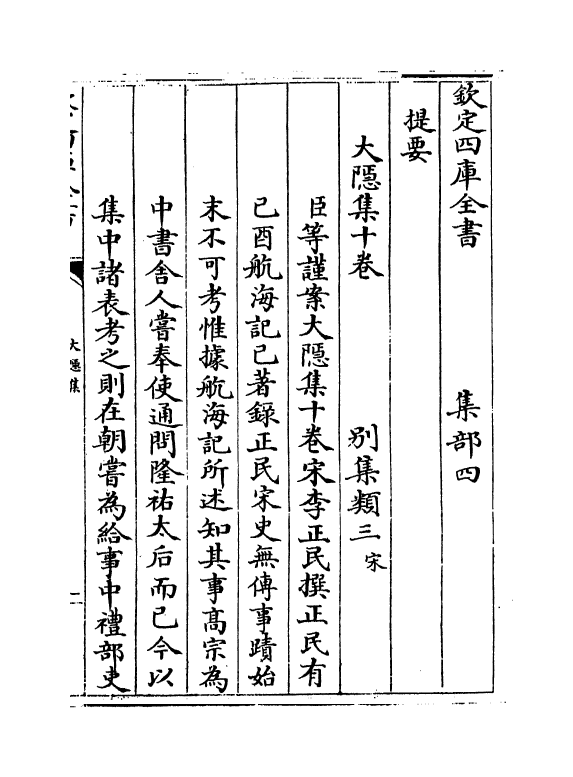 欽定四庫全書　集部四
提要
大隠集十卷　別集類三宋
臣等謹案大隠集十卷宋李正民撰正民有
己酉航海記已著錄正民宋史無傳事蹟始
末不可考惟據航海記所述知其事髙宗為
中書舍人嘗奉使通問隆祐太后而已今以
集中諸表考之則在朝嘗為給事中禮部吏
大隠集